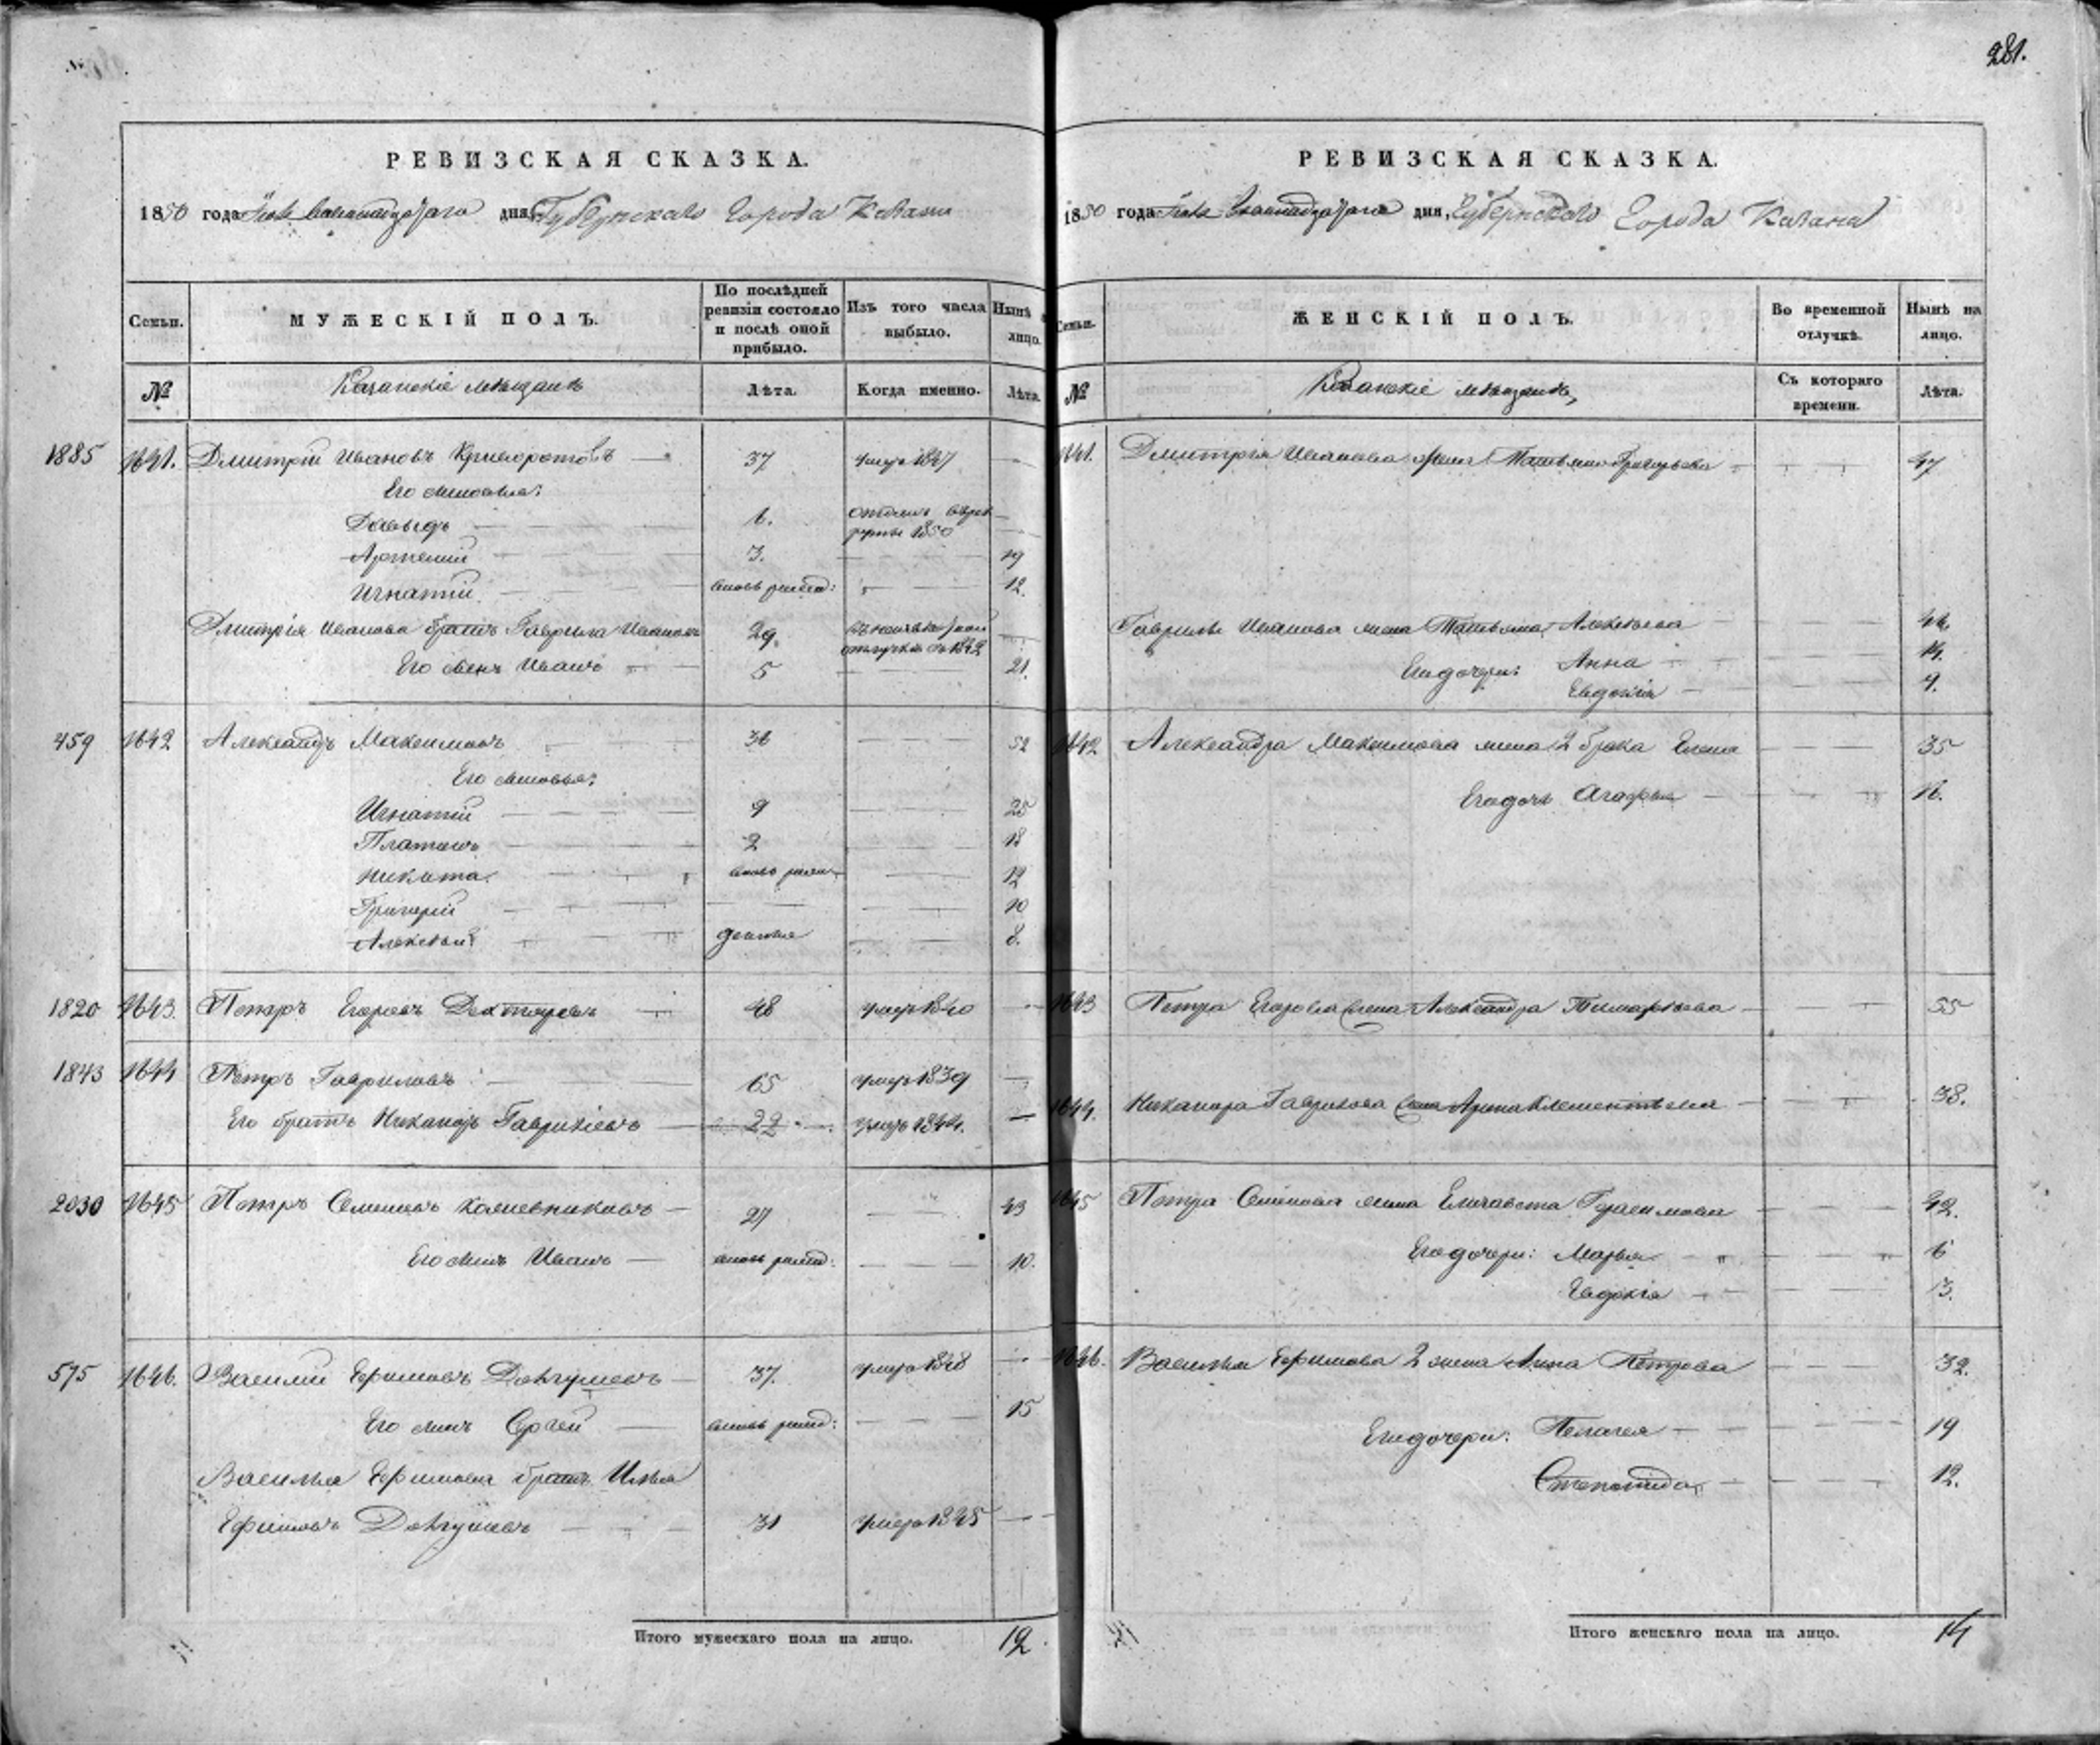 281.
РЕВИЗСКАЯ СКАЗКА.
1850 года дня, Губернского Города Казани
Семьи. МУЖЕСКІЙ ПОЛЪ. По послѣдней ревизіи состояло и послѣ оной прибыло. Изъ того числа выбыло. Нынѣ на лицо.
№ Казанскіе мѣщане Лѣта. Когда именно. Лѣта.
1885 1641. Дмитрій Ивановъ Криворотовъ 37 умеръ 1847
Его сыновья:
Давыдъ 6. 1850
Артемий 3. 19
Игнатій вновь рожд: 12.
Дмитрія Иванова братъ Гаврила Ивановъ 29. отлучкѣ съ 1842
Его сынъ Иванъ 5 21.
459 1642 Александръ Максимовъ 36 52
Его сыновья:
Игнатій 9 25
Платонъ 2 18
Никита вновь рожд. 12
Григорій 10
Алексѣй 8.
1820 1643. Петръ Егоровъ 48 умеръ 1840
1843 1644 Петръ Гавриловъ 65 умеръ 1839
Его братъ Никаноръ Гавриловъ 22 умеръ 1844.
2030 1645 Петръ Семеновъ 27 43
Его сынъ Иванъ вновь рожд: 10.
575 1646. Василій Ефимовъ Довгушевъ 37. умеръ 1848
Его сынъ Сергей вновь рожд: 15
Василья Ефимова братъ Илья
Ефимовъ Довгушевъ 31 умеръ 1845
Итого мужескаго пола на лицо. 12
РЕВИЗСКАЯ СКАЗКА.
1850 года дня, Губернского Города Казани
Семьи. ЖЕНСКІЙ ПОЛЪ. Во временной отлучкѣ. Нынѣ на лицо.
№ Казанскіе мѣщане, Съ котораго времени. Лѣта.
1641. Дмитрія Иванова жена Татьяна Григорьева 47
Гаврилы Иванова жена Татьяна Алексѣева
Его дочери: Анна 14.
Евдокія 9.
1642 Александра Максимова жена 2 брака Елена 35
Его дочь Агафья 16.
1643 Петра Егорова жена Александра 55
1644. Никанора Гаврилова жена Арина Клементьева 38.
1645 Петра Семенова жена Елизавета Герасимова 42.
Его дочери: Марья 6
Евдокія 3.
1646. Василья Ефимова 2 жена Анна Петрова 32.
Его дочери: Пелагея 19
Степанида 12.
Итого женскаго пола на лицо. 14